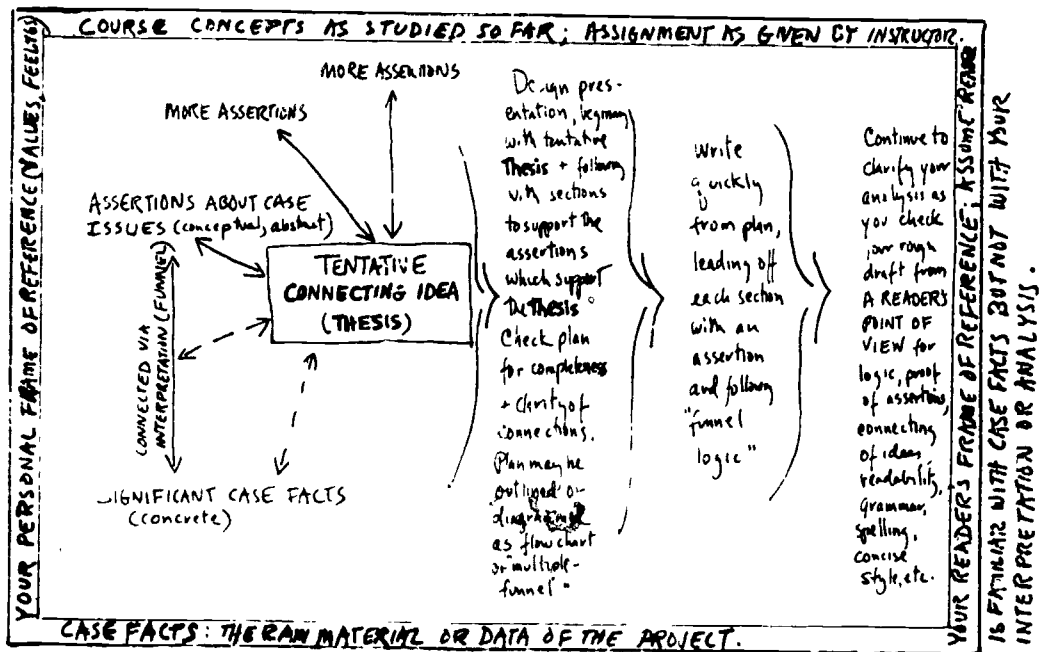 COURSE CONCEPTS AS STUDIED SO FAR; ASSIGNMENT AS GIVEN BY INSTRUCTOR.
YOUR PERSONAL FRAME OF REFERENCE (VALUES, FEELINGS)
MORE ASSERTIONS
MORE ASSERTIONS
ASSERTIONS ABOUT CASE
ISSUES (conceptual, abstract)
CONNECTED VIA
INTERPRETATION (FUNNEL)
TENTATIVE
CONNECTING IDEA
(THESIS)
SIGNIFICANT CASE FACTS
(concrete)
Design pres-
entation, beginning
with tentative
Thesis + following
with sections
to support the
assertions
which support
the Thesis.
Check plan
for completeness
+ clarity of
connections.
Plan may be
outlined or
as flow chart
or "multiple-
funnel"
Write
quickly
from plan,
leading off
each section
with an
assertion
and following
"funnel
logic"
Continue to
clarify your
analysis as
you check
your rough
draft from
A READER'S
POINT OF
VIEW for
logic, proof
of assertions,
connecting
of ideas,
readability,
grammar,
spelling,
concise
style, etc.
YOUR READERS FRAME OF REFERENCE; ASSUME READER
IS FAMILIAR WITH CASE FACTS BUT NOT WITH YOUR
INTERPRETATION OR ANALYSIS.
CASE FACTS: THE RAW MATERIAL OR DATA OF THE PROJECT.